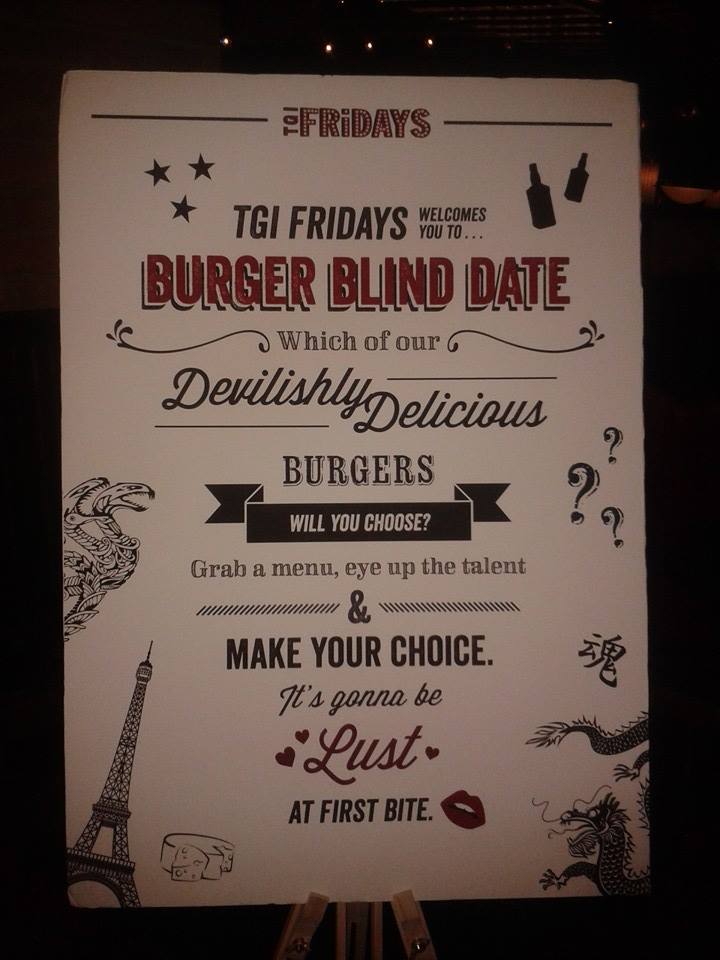 TGI FRiDAYS
TGI FRIDAYS WELCOMES YOU TO...
BURGER BLIND DATE
Which of our
Devilishly
Delicious
BURGERS
WILL YOU CHOOSE?
? ? ?
Grab a menu, eye up the talent
&
MAKE YOUR CHOICE.
魂
It's gonna be
Lust
AT FIRST BITE.